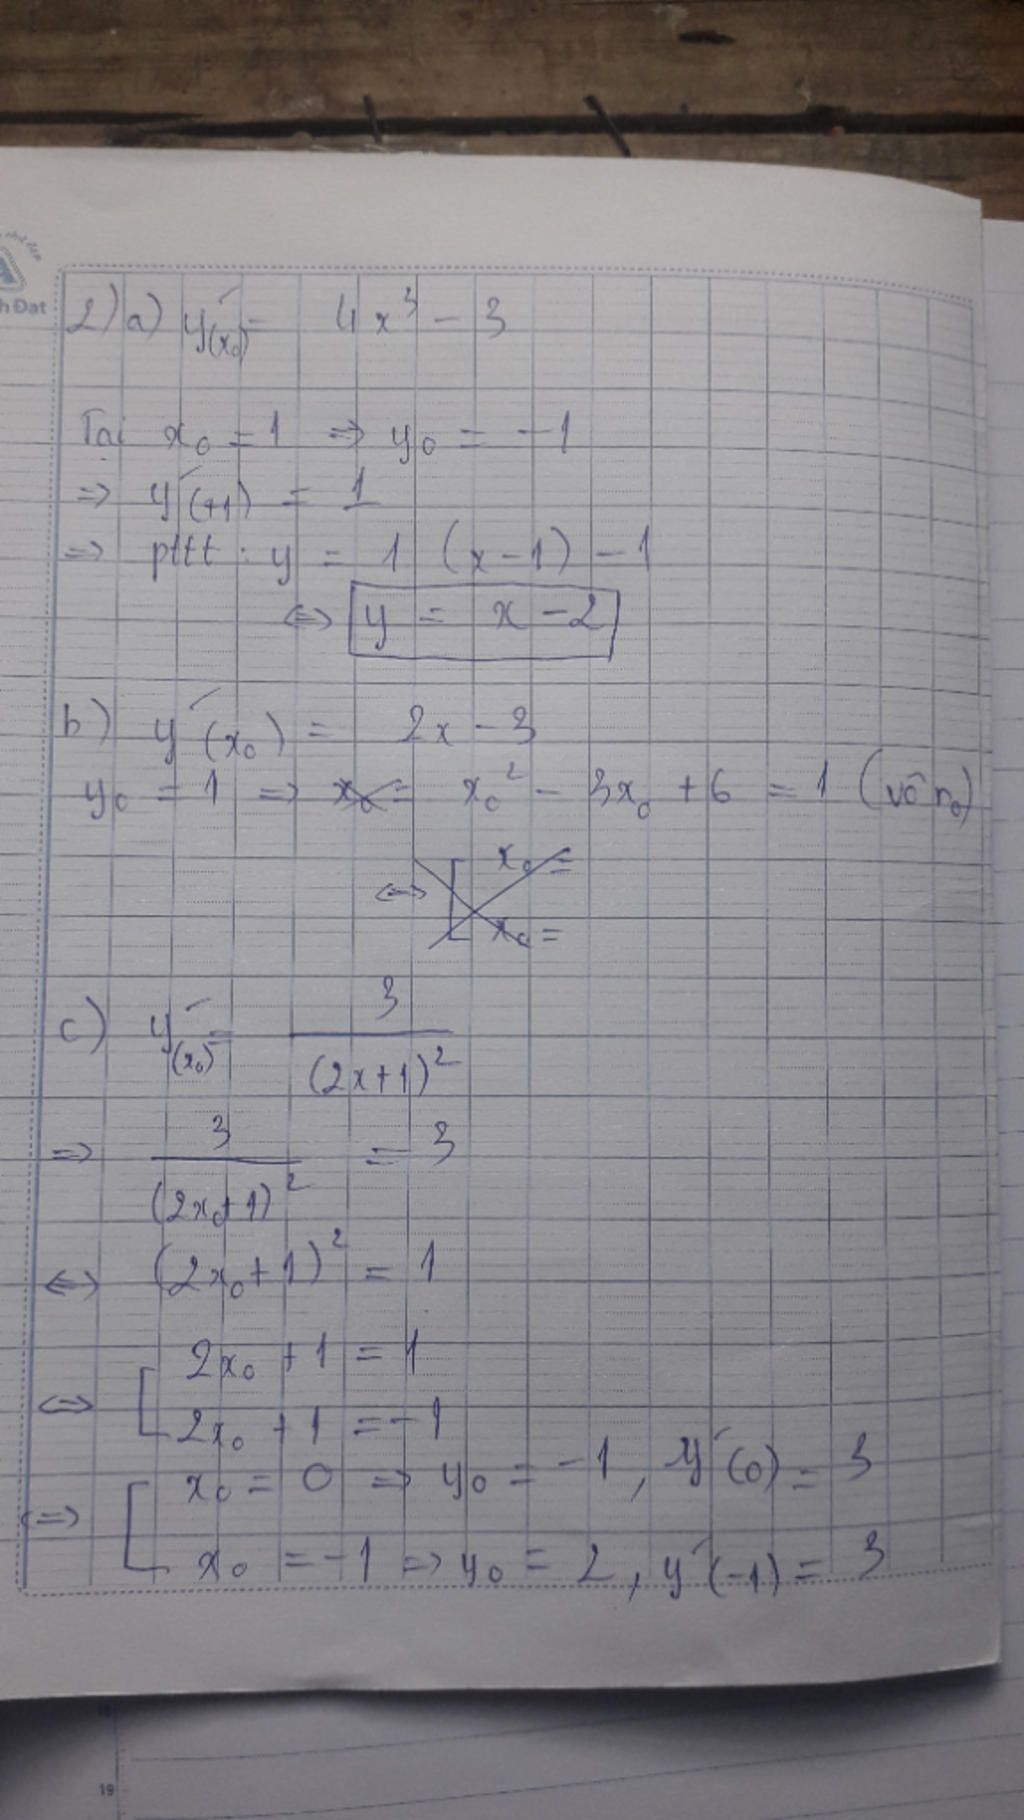 2) a) y'(x₀) = 4x³ - 3
Tại x₀ = 1 => y₀ = -1
=> y'(+1) = 1
=> pttt : y = 1 (x - 1) - 1
<=> y = x - 2
b) y'(x₀) = 2x - 3
y₀ = 1 => x₀ = x₀² - 3x₀ + 6 = 1 (vô n₀)
<=> [ x₀ =
x₀ =
c) y'(x₀) = 3 / (2x+1)²
=> 3 / (2x₀+1)² = 3
<=> (2x₀ + 1)² = 1
<=> [ 2x₀ + 1 = 1
2x₀ + 1 = -1
<=> [ x₀ = 0 => y₀ = -1 , y'(0) = 3
x₀ = -1 => y₀ = 2 , y'(-1) = 3
h Đạt
19